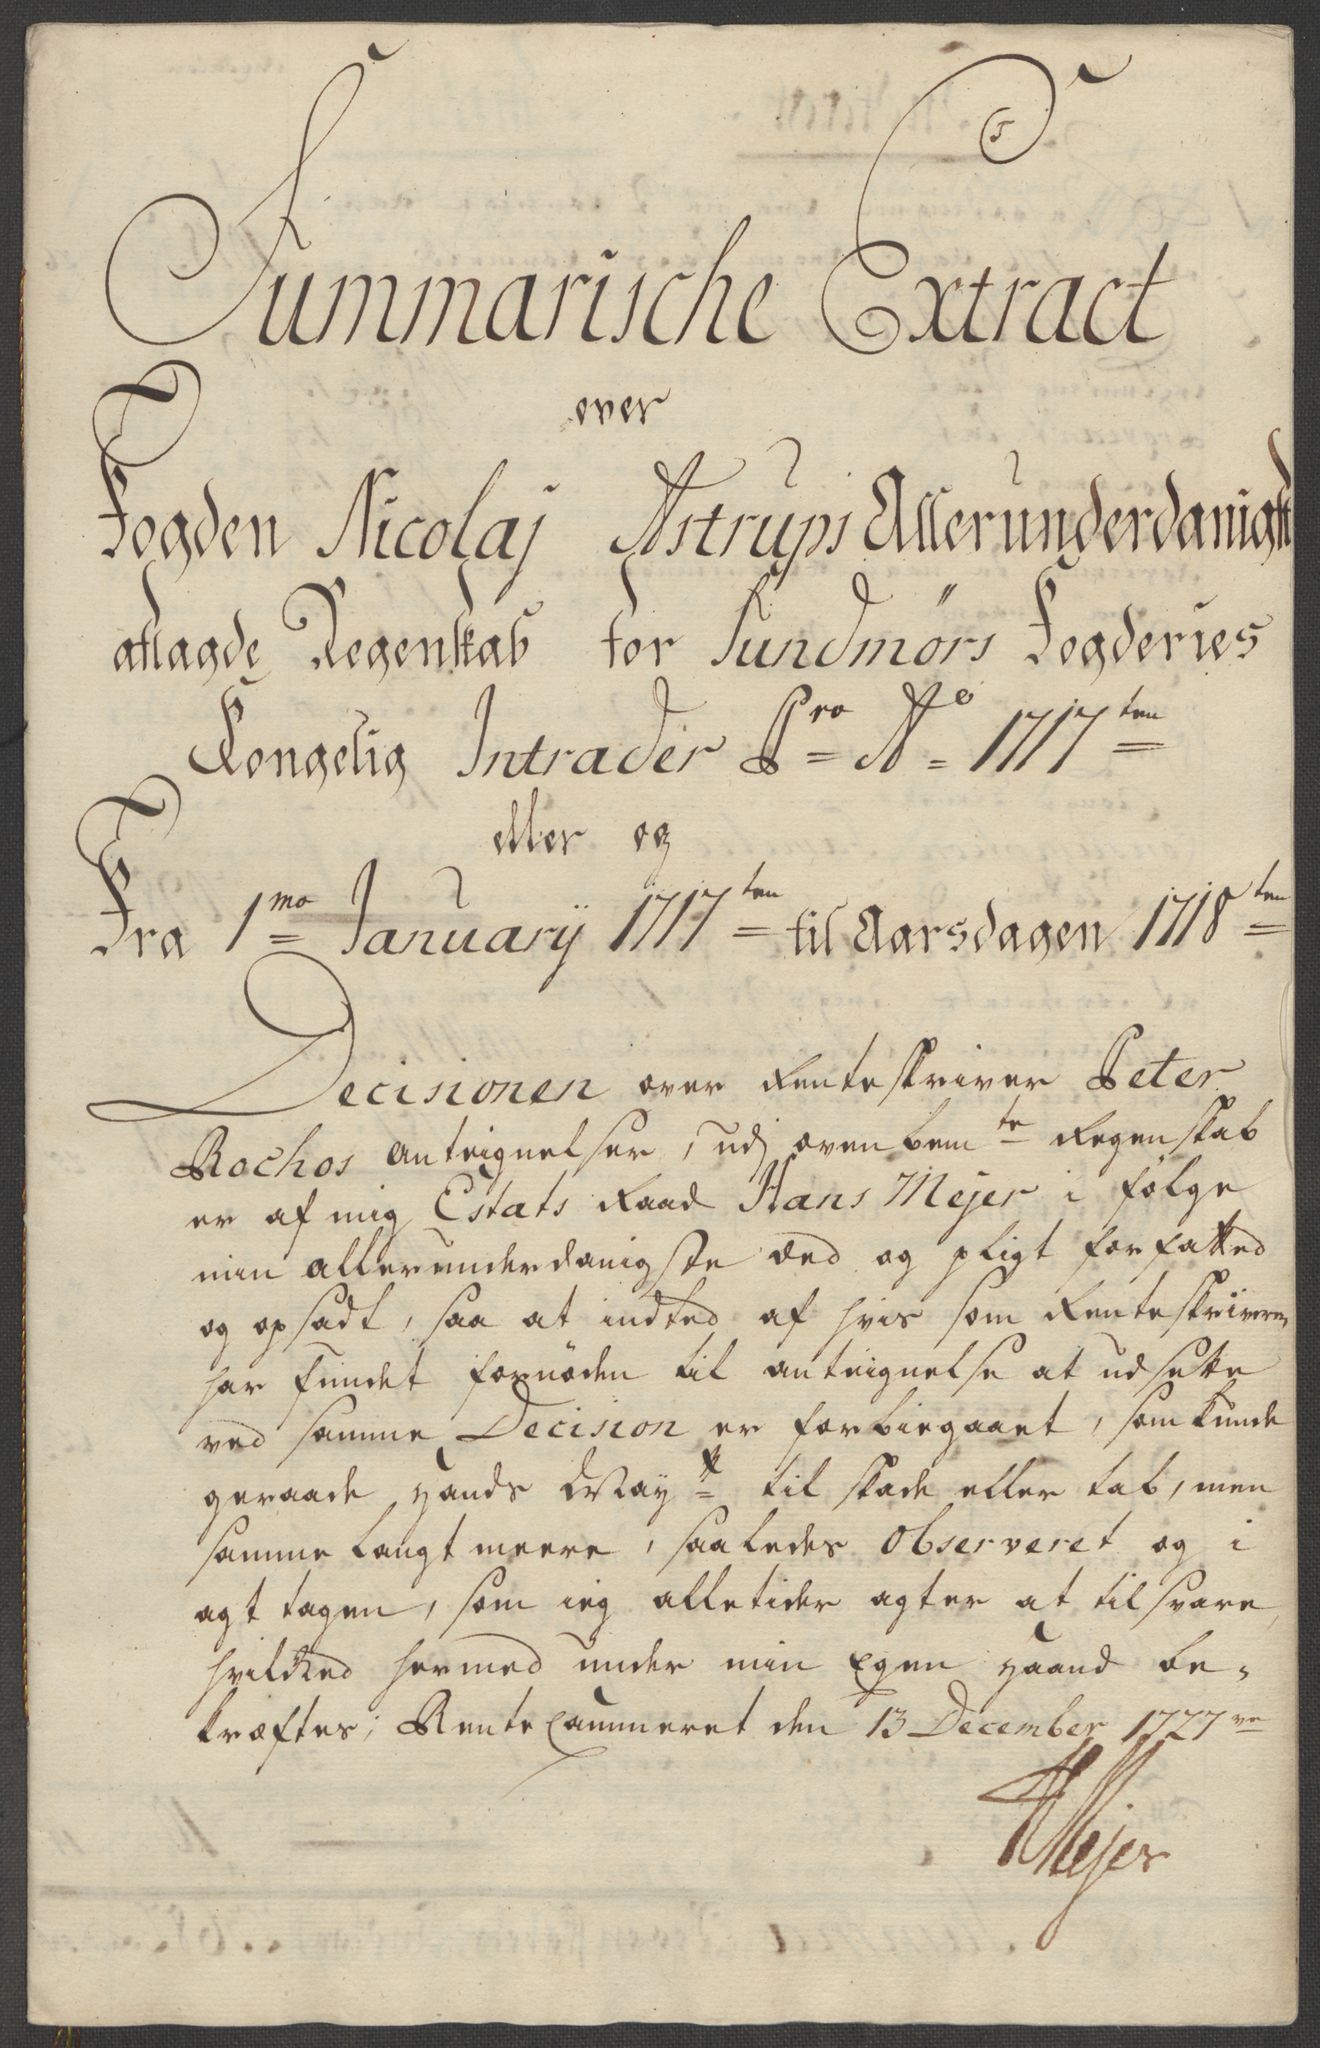 5
Summarische Extract
over
Fogden Nicolaj Astrups Allerunderdanigst
aflagde Regenskab for Sundmörs Fogderies
Kongelig Intrader Pro Ao 1717ten
eller og
Fra 1mo Januarij 1717ten til Aarsdagen 1718ten
Decisionen over Renteskriver Peter
Rochos Anteignelser, udj ovenbemte Regenskab
er af mig Estats Raad Hans Mejer i følge
min allerunderdanigste Eed og pligt forfatted
og opsadt, saa at indted af hvis som Renteskriveren
har fundet fornöden til anteignelse at udsette
ved samme Decision er forbiegaaet, som kunde
geraade hands Mayt til skade eller tab, men
samme langt meere, saaledes Observeret og i
agt tagen, som ieg alletider agter at tilsvare,
hvilcked hermed under min Egen haand be-
kræftes; Rente Cammeret den 13 December 1727
HMejer